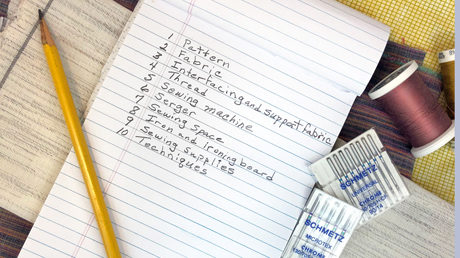 1 Pattern
2 Fabric
3 Interfacing and support fabric
4 Thread
5 Sewing machine
6 Serger
7 Sewing space
8 Iron and ironing board
9 Sewing supplies
10 Techniques
SCHMETZ
CHROME
SCHMETZ
MICROTEX
CHROME